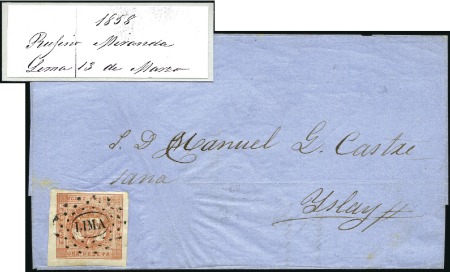 1858
Rufino Miranda
Lima 13 de Marzo
S. D. Manuel G. Castre
sana
Yslay
LIMA